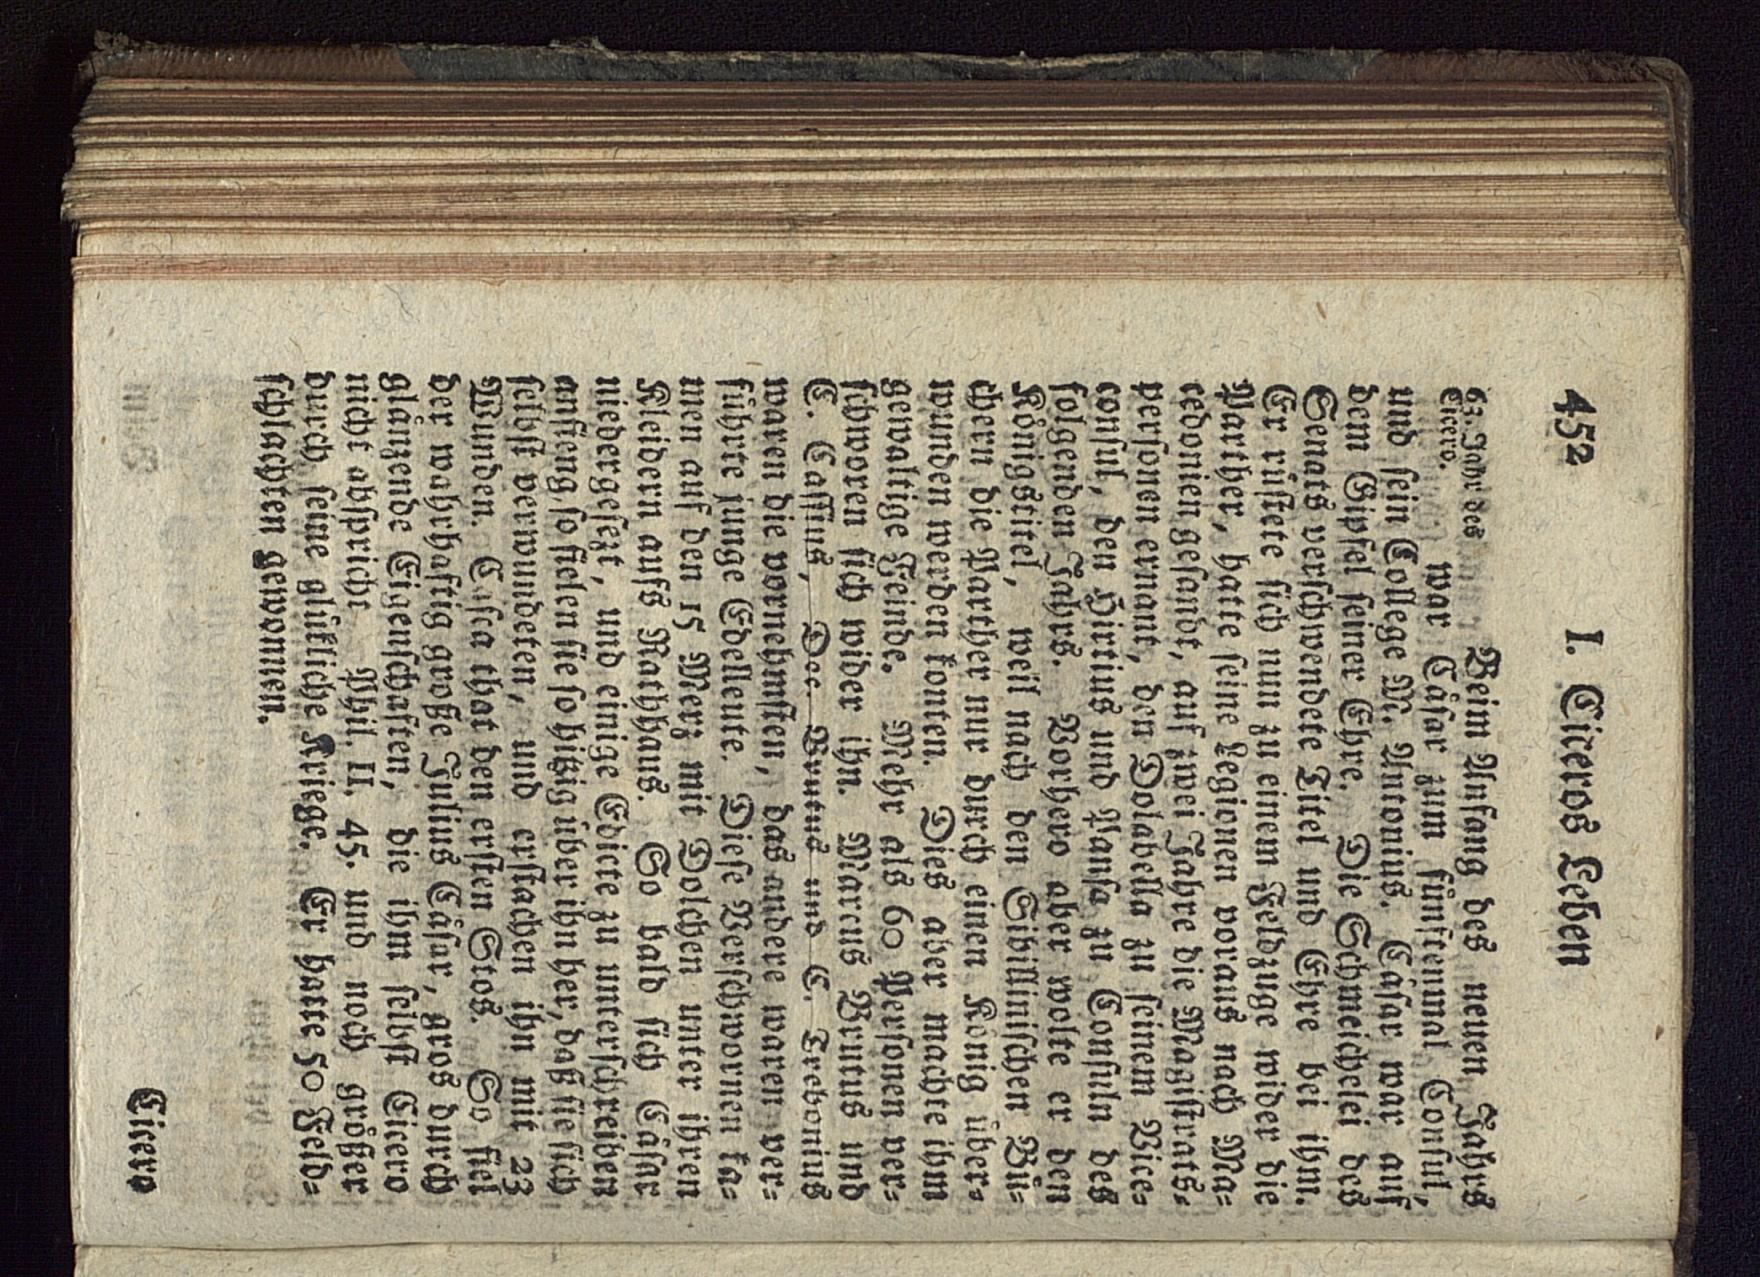 452 I. Ciceros Leben
63. Jahr des Cicero.
Beim Anfang des neuen Jahrs
war Cäsar zum fünftenmal Consul,
und sein College M. Antonius. Cäsar war auf
dem Gipfel seiner Ehre. Die Schmeichelei des
Senats verschwendete Titel und Ehre bei ihm.
Er rüstete sich nun zu einem Feldzuge wider die
Parther, hatte seine Legionen voraus nach Ma-
cedonien gesandt, auf zwei Jahre die Magistrats-
personen ernant, den Dolabella zu seinem Vice-
consul, den Hirtius und Pansa zu Consuln des
folgenden Jahrs. Vorhero aber wolte er den
Königstitel, weil nach den Sibillinischen Bü-
chern die Parther nur durch einen König über-
wunden werden konten. Dies aber machte ihm
gewaltige Feinde. Mehr als 60 Personen ver-
schworen sich wider ihn. Marcus Brutus und
C. Cassius, Dec. Brutus und C. Trebonius
waren die vornehmsten, das andere waren ver-
führte junge Edelleute. Diese Verschwornen ka-
men auf den 15 Merz mit Dolchen unter ihren
Kleidern aufs Rathhaus. So bald sich Cäsar
niedergesezt, und einige Edicte zu unterschreiben
anfieng, so fielen sie so hizig über ihn her, daß sie sich
selbst verwundeten, und erstachen ihn mit 23
Wunden. Casca that den ersten Stos. So fiel
der wahrhaftig große Julius Cäsar, gros durch
glänzende Eigenschaften, die ihm selbst Cicero
nicht abspricht Phil. II. 45. und noch größer
durch seine glükliche Kriege. Er hatte 50 Feld-
schlachten gewonnen.
Cicero